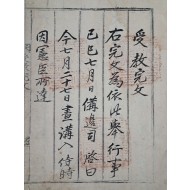 受教完文
右完文為依此舉行事
己巳七月日備邊司 啓曰
今七月二十七日晝講入侍時
因憲臣所達